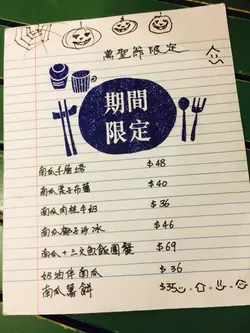 萬聖節限定
期間
限定
南瓜千層塔 $48
南瓜栗子布甸 $40
南瓜肉桂牛奶 $36
南瓜椰子沙冰 $46
南瓜十三文魚飯團餐 $69
奶油伴南瓜 $36
南瓜薯餅 $35